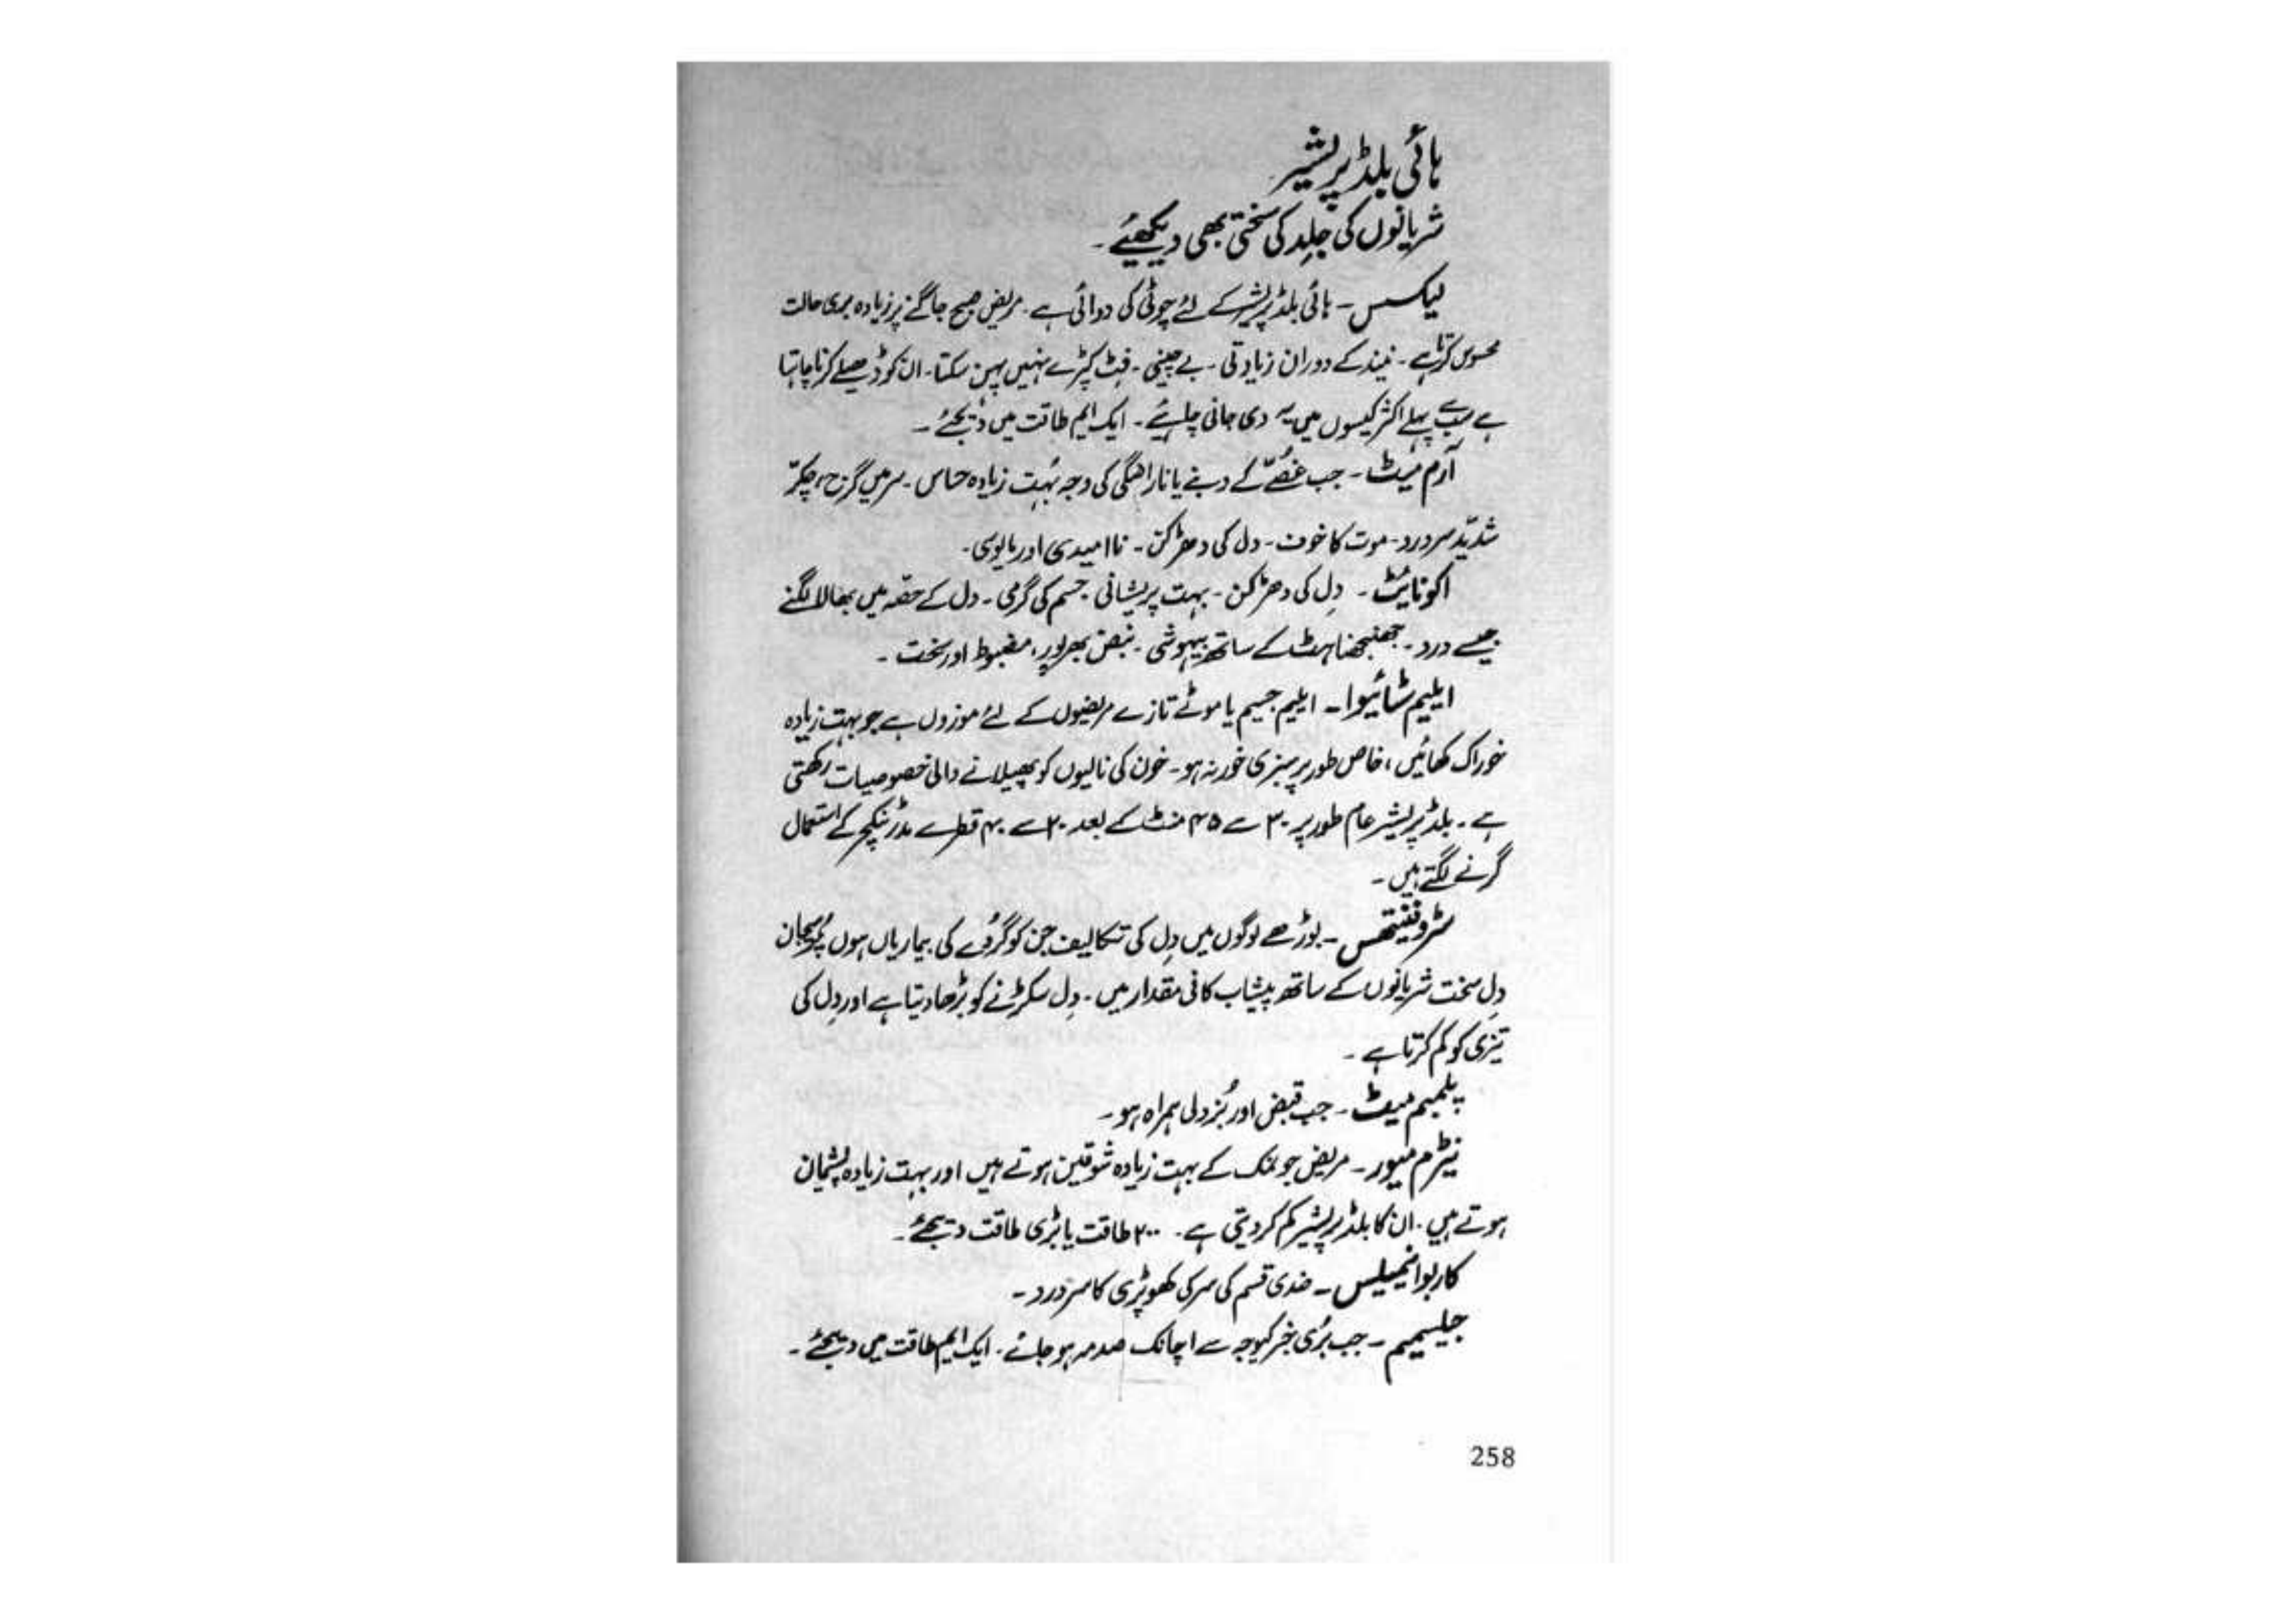 ہائی بلڈ پریشیر
شریانوں کی جلِد کی سختی بھی دیکھیئے۔
لیکسس ۔ ہائی بلڈ پریشر کے لئے چوٹی کی دوائی ہے ۔ مریض صبح جاگنے پر زیادہ بری حالت
محسوس کرتا ہے ۔ نیند کے دوران زیادتی ۔ بے چینی ۔ فِٹ کپڑے نہیں پہن سکتا ۔ ان کو ڈھیلے کرنا چاہتا
ہے سب سے پہلے اکثر کیسوں میں یہ دی جانی چاہیئے ۔ ایک ایم طاقت میں دیجئے ۔
آرم میٹ ۔ جب غصّے کے دبنے یا ناراضگی کی وجہ بہُت زیادہ حساس ۔ سر میں گرج، چکرّ
شدید سردرد ۔ موت کا خوف ۔ دل کی دھڑکن ۔ ناامیدی اور مایوسی ۔
اکونایٹ ۔ دِل کی دھڑکن ۔ بہت پریشانی جسم کی گرمی ۔ دل کے حصّہ میں بھالا لگنے
جیسے درد ۔ جھنجھناہٹ کے ساتھ بیہوشی ۔ نبض بھرپور، مضبوط اور سخت ۔
ایلیم سٹائیوا ۔ ایلیم جسیم یا موٹے تازے مریضوں کے لئے موزوں ہے جو بہت زیادہ
خوراک کھائیں، خاص طور پر سبزی خور نہ ہو ۔ خون کی نالیوں کو پھیلانے والی خصوصیات رکھتی
ہے ۔ بلڈ پریشر عام طور پر ۳۰ سے ۴۵ منٹ کے بعد ۲۰ سے ۴۰ قطرے مدر ٹنکچر کے استعمال
گرنے لگتے ہیں ۔
سٹروفینتھس ۔ بوڑھے لوگوں میں دِل کی تکالیف جن کو گردے کی بیماریاں ہوں پُرہیجان
دِل سخت شریانوں کے ساتھ پیشاب کافی مقدار میں ۔ دِل سکڑنے کو بڑھا دیتا ہے اور دِل کی
تیزی کو کم کرتا ہے ۔
پلمبم میٹ ۔ جب قبض اور بُزدلی ہمراہ ہو ۔
نیٹرم میور ۔ مریض جو نمک کے بہت زیادہ شوقین ہوتے ہیں اور بہت زیادہ پشیمان
ہوتے ہیں ۔ ان کا بلڈ پریشیر کم کر دیتی ہے ۔ ۲۰۰ طاقت یا بڑی طاقت دیجئے ۔
کاربو انیمیلس ۔ ضدی قسم کی سر کی کھوپڑی کا سردرد ۔
جلسیمیم ۔ جب بُری خبر کیوجہ سے اچانک صدمہ ہو جائے ۔ ایک ایم طاقت میں دیجئے ۔
258